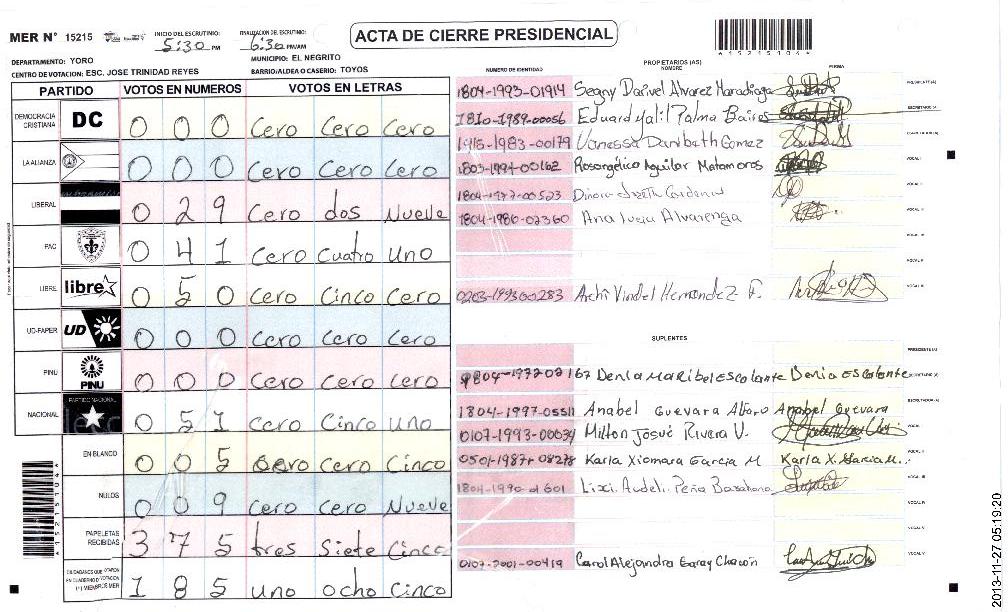 MER N° 15215
INICIO DEL ESCRUTINIO:
5:30 PM
FINALIZACION DEL ESCRUTINIO:
6:30 PM/AM
ACTA DE CIERRE PRESIDENCIAL
15215104
DEPARTAMENTO: YORO
MUNICIPIO: EL NEGRITO
CENTRO DE VOTACION: ESC. JOSE TRINIDAD REYES
BARRIO/ALDEA O CASERIO: TOYOS
PARTIDO VOTOS EN NUMEROS VOTOS EN LETRAS
DEMOCRACIA CRISTIANA DC 0 0 0 Cero Cero Cero
LA ALIANZA 0 0 0 Cero Cero Cero
LIBERAL 0 2 9 Cero dos Nueve
PAC 0 4 1 Cero Cuatro Uno
LIBRE libre 0 5 0 Cero Cinco Cero
UD-FAPER UD 0 0 0 Cero Cero Cero
PINU PINU 0 0 0 Cero Cero Cero
NACIONAL PARTIDO NACIONAL 0 5 1 Cero Cinco Uno
EN BLANCO 0 0 5 Cero Cero Cinco
NULOS 0 0 9 Cero Cero Nueve
PAPELETAS RECIBIDAS 3 7 5 tres Siete Cinco
CIUDADANOS QUE VOTARON EN CUADERNO DE VOTACION (+) MIEMBROS MER 1 8 5 Uno ocho Cinco
NUMERO DE IDENTIDAD
PROPIETARIOS (AS)
NOMBRE
FIRMA
1804-1993-01914 Segny Daniel Alvarez Maradiaga
PRESIDENTE (A)
1810-1989-00056 Eduard Yalil Palma Baires
SECRETARIO (A)
1415-1983-00179 Vanessa Danibeth Gomez
1803-1994-00162 Rosangelica Aguilar Matamoros
VOCAL I
1804-1977-00523
1804-1986-02360 Ana Lucia Alvarenga
0203-1993 00283 Archi Vindel Hernandez F.
SUPLENTES
PRESIDENTE (A)
1804-1977 02167 Denia Maribel Escalante Denia Escalante
SECRETARIO (A)
1804-1997-05511 Anabel Guevara Anabel Guevara
0107-1993-00034 Milton Josue Rivera V.
VOCAL I
0501-1987-08278 Karla Xiomara Garcia M Karla X. Garcia M.
1804-1990-01601
0107-2001-00419 Carol Alejandra Garay Chacón
VOCAL V
2013-11-27 05:19:20